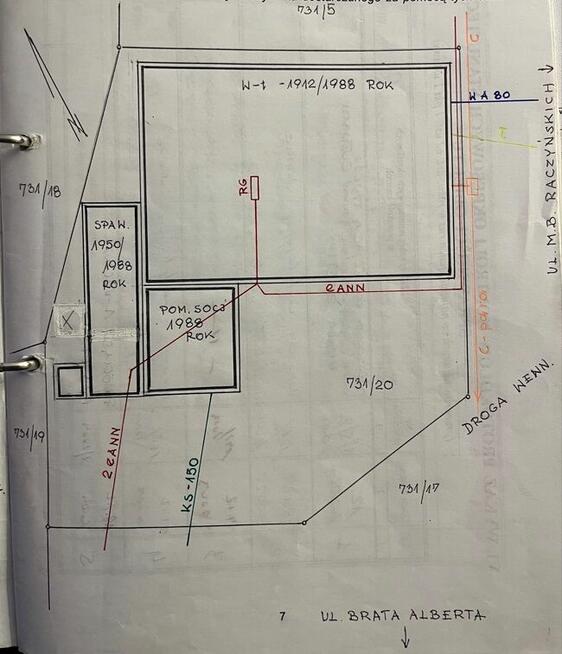 731/5
C
W-t -1912/1988 ROK
WA 80
UL. M.B. RACZYŃSKICH
731/18
RG
SPAW.
1950/
1988
ROK
eANN
POM. SOCJ
1988
ROK
X
C-para
731/20
DROGA WEWN.
731/19
2 eANN
KS-150
731/17
7 UL. BRATA ALBERTA